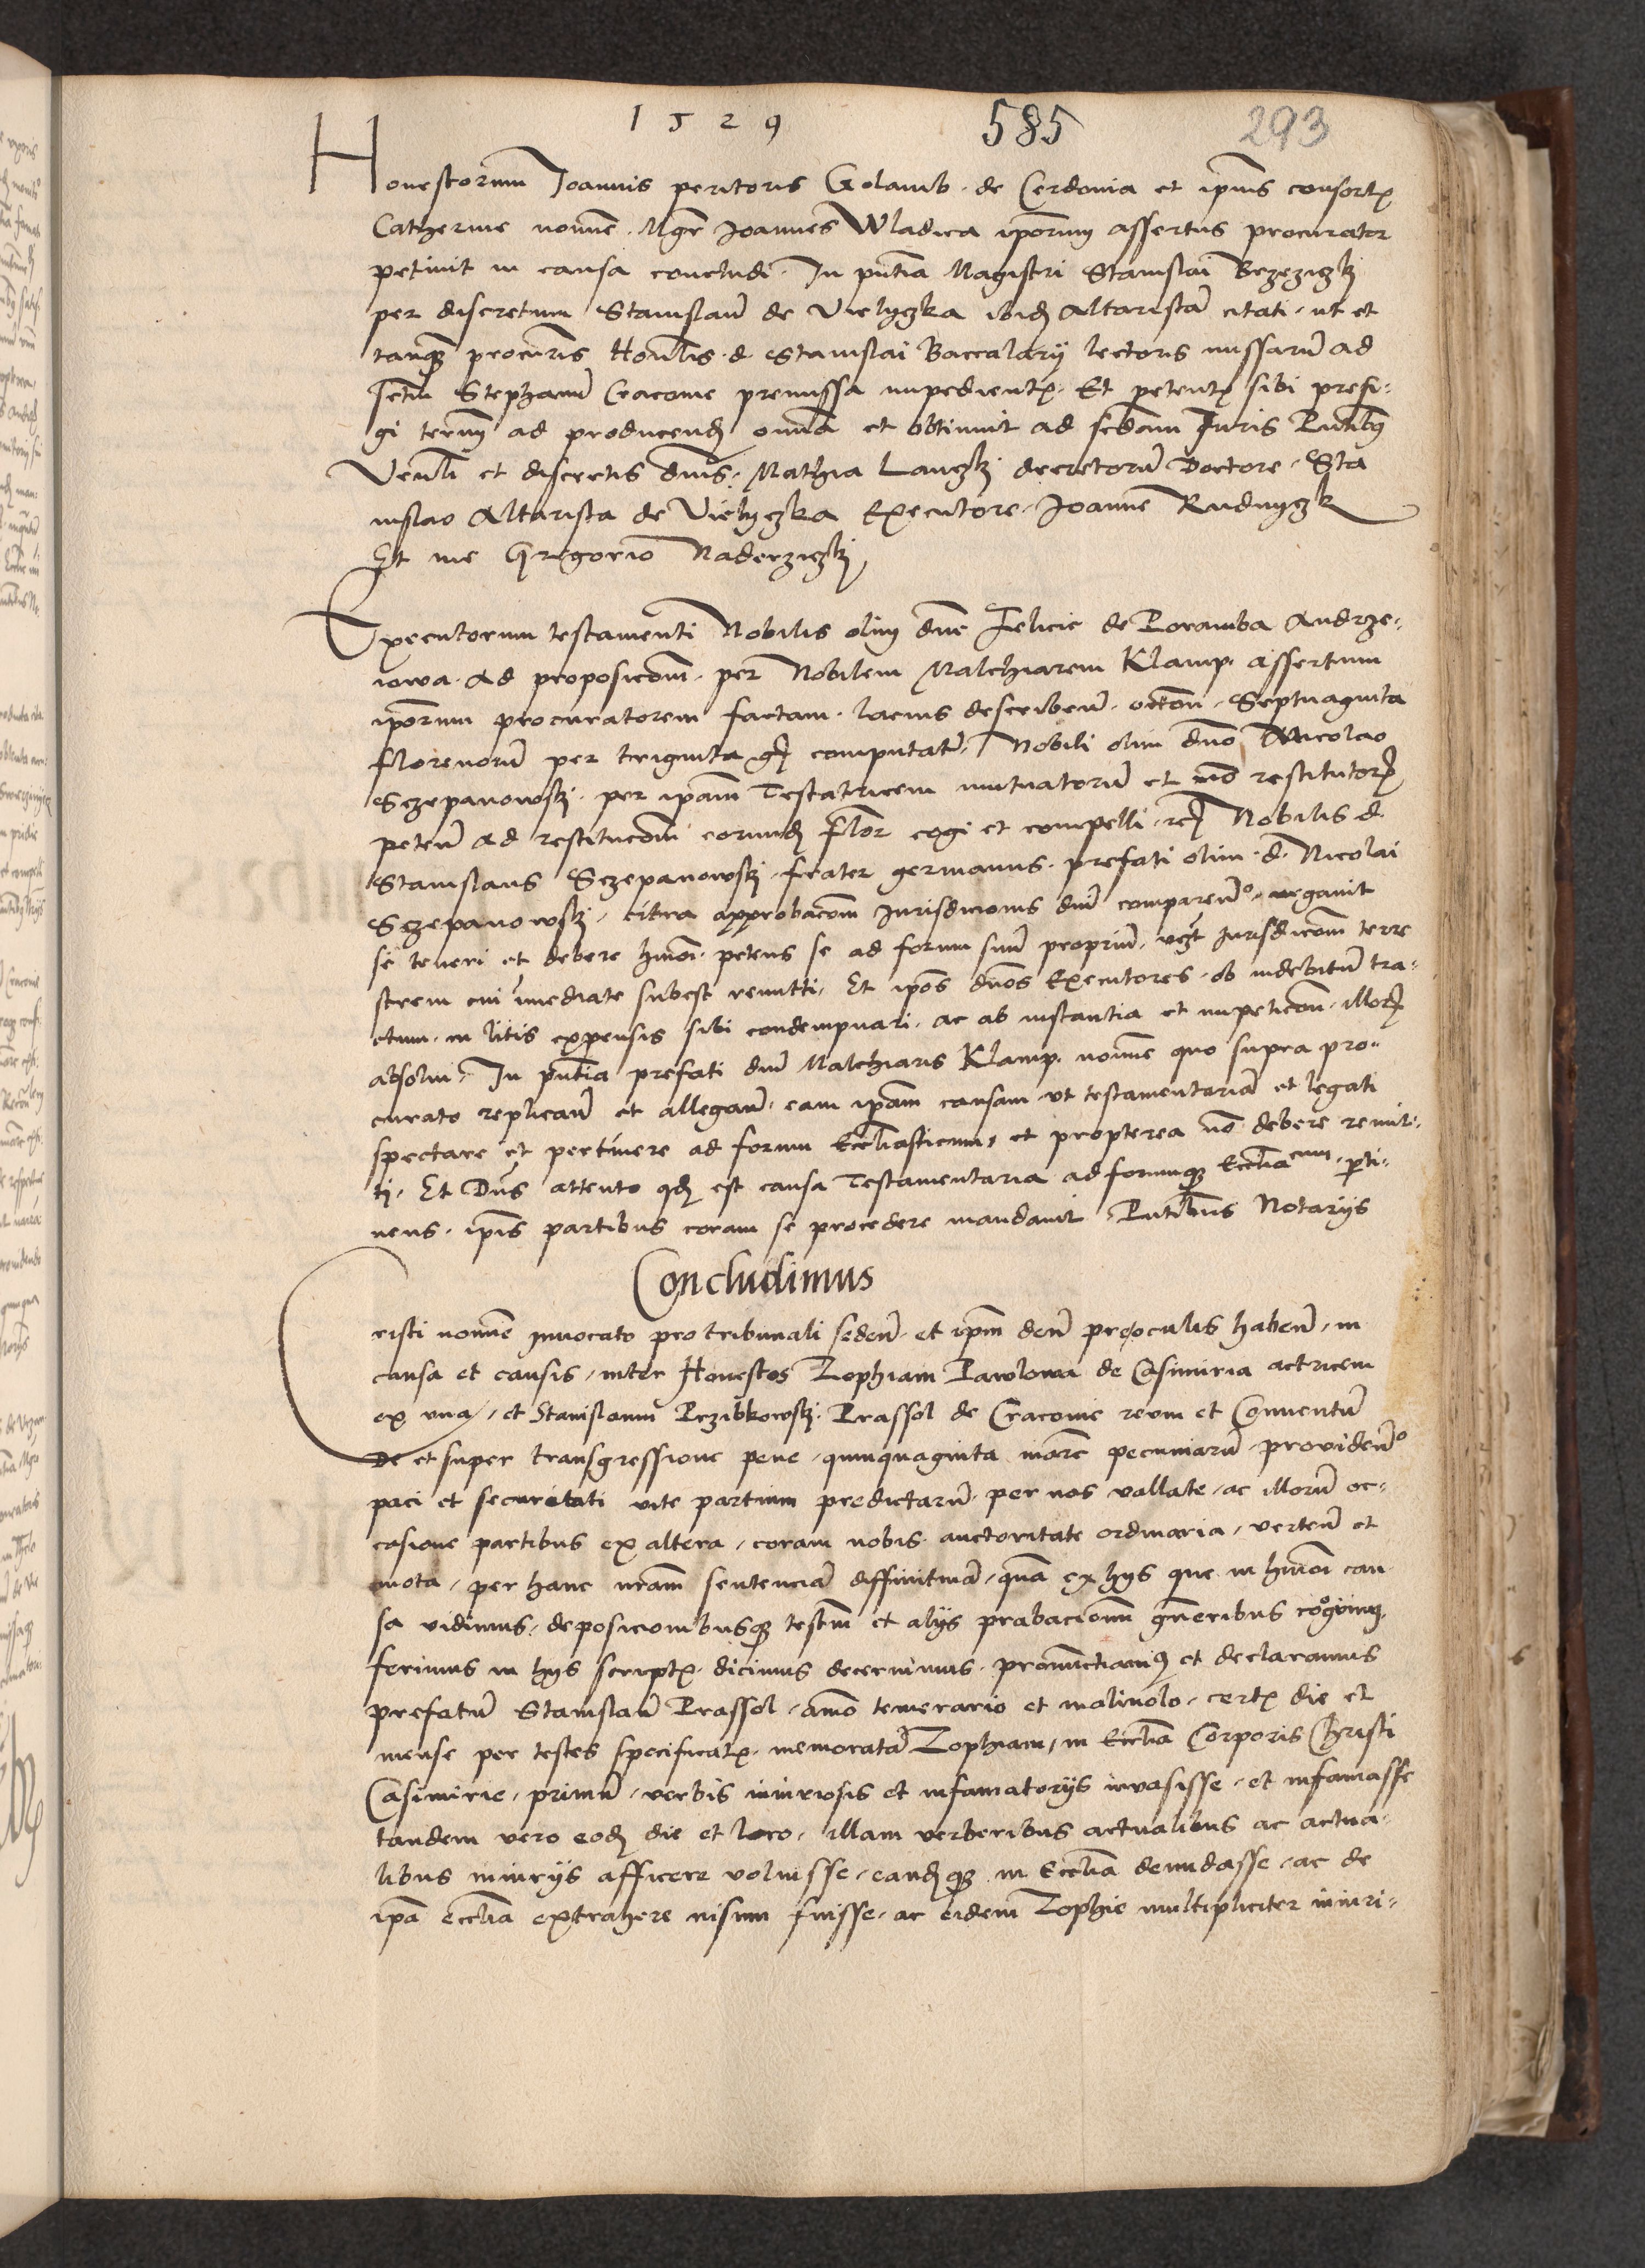 1529 585 293
Honestorum Joannis peritoris Golamb · de Cerdonia et ipius consortz
Catherine noīne · Mgr̄ Joannes Wladica ip̄orum assertus procurator
petivit in causa concludi · In p̄ntia Magistri Stanislai Brzeziczki
per discretum Stanislaū de Vielyczka ibid̄ Altaristā citati · ut et
tanq̄ procur̄is Hon̄lis · d · Stanislai Baccalarij lectoris missarū ad
sctū Stephanū Cracovie premissa impedientz · Et petentz sibi prefi-
gi term̄ ad producend̄ om̄ia et obtinuit ad sc̄dam Juris Pn̄tibus
Ven̄li et discretis dn̄is · Mathia Lanczki decretorū Doctore · Sta
nislao Altarista de Vielyczka Executore · Joanne Rudnyczk
Et me Gregorio Naderziczki
Executorum testamenti Nobilis olim dn̄e Felicie de Poramba Andrze-
iowa · ad proposicōm · per Nobilem Malchiarem Klamp · assertum
ip̄orum procuratorem factam · lacius describen̄ · occōn · Septuaginta
florenorū per triginta gr̄ computat̄ · Nobili olim dn̄o Nicolao
Sczepanowski · per ip̄am Testatricem mutuatorū et nō restitutor̄
peten̄ ad restitucōm eorund̄ flor̄ cogi et compelli · Nobilis d ·
Stanislaus Sczepanowski · frater germanus · prefati olim · d · Nicolai
Sczepanowski · citra approbacōm Jurisdicionis dn̄i comparen̄o · negavit
se teneri et debere hm̄oi · petens se ad forum suū propriū · Jurisdicōm terre
strem cui īmediate subest remitti · Et ip̄os dn̄os Executores · ob indebitū tra-
ctum · in litis expensis sibi condempnari · ac ab instantia et impeticōn · illor̄
absolvi · In p̄ntia prefati dn̄i Malchiaris Klamp · noīne quo supra pro-
curato replican̄ et allegan̄ · eam ip̄am causam ut testamentariā et legati
spectare et pertinere ad forum Eccl̄iasticum · et propterea nō debere remit-
ti · Et Dn̄s attento qd̄ est causa Testamentaria ad forumq̄ Eccl̄iacum · p̄ti-
nens · ip̄is partibus coram se procedere mandavit · Pn̄tibus Notarijs
Concludimus
Cristi noīne invocato pro tribunali seden̄ · et ip̄m deū pre oculis haben̄ · in
causa et causis · inter Honestos Zophiam Pawlowa de Casimiria actricem
ex una · et Stanislaum Przibkowski · Prassol de Cracovie reum et Conventū
De et super transgressione pene · quinquaginta mar̄c pecuniarū · providen̄o
paci et securitati vite partium predictarū · per nos vallate · ac illorum oc-
casione partibus ex altera · coram nobis auctoritate ordinaria · verten̄ et
mota · per hanc nr̄am sentenciā diffinitivā · quā ex hys que in hm̄oi cau
sa vidimus · deposicionibusq̄ testiū et alijs probacionū gn̄eribus cōgvimus
ferimus in hys scriptz · dicimus decernimus · pronunctiamus et declaramus
prefatū Stanislaū Prassol · an̄io temerario et malivolo · certz die et
mense per testes specificatz · memoratā Zophiam · in Eccl̄ia Corporis Christi
Casimirie · primū · verbis iniuriosis et infamatorijs invasisse · et infamasse
tandem vero eod̄ die et loco · illam verberibus actualibus ac actua-
libus iniurijs afficere voluisse · eand̄q̄ in Eccl̄ia denudasse · ac de
ip̄a Eccl̄ia extrahere nisum fuisse · ac eidem Zophie multipliciter iniuri-